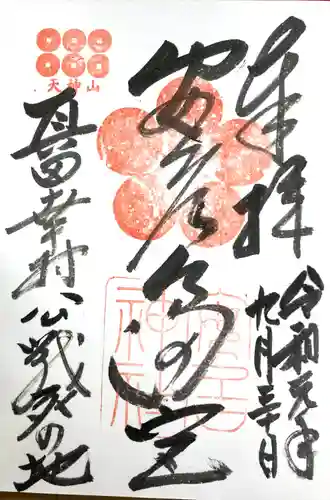 奉拝
令和元年
九月三十日
安居
安居神社
天神山
真田幸村公戦死の地